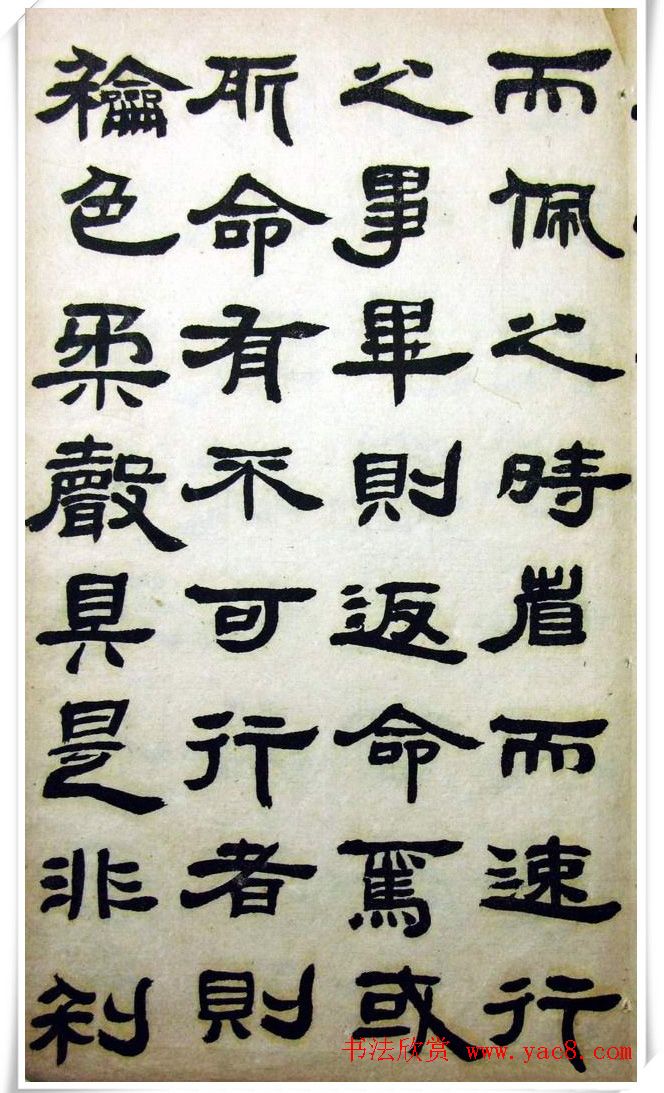 而佩之時省而速行
之事畢則返命焉或
所命有不可行者則
龢色柔聲具是非利
书法欣赏 www.yac8.com